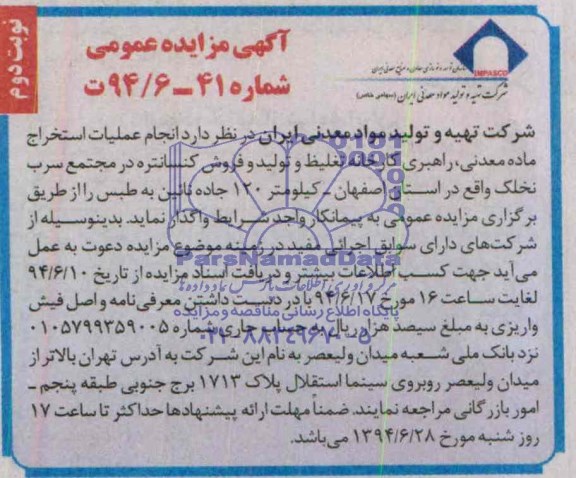 نوبت دوم
آگهی مزایده عمومی
شماره ۴۱ ـ ۹۴/۶ت
IMPASCO
شرکت تهیه و تولید مواد معدنی ایران (سهامی خاص)
شرکت تهیه و تولید مواد معدنی ایران در نظر دارد انجام عملیات استخراج
ماده معدنی، راهبری کارخانه تغلیظ و تولید و فروش کنسانتره در مجتمع سرب
نخلک واقع در استان اصفهان ـ کیلومتر ۱۲۰ جاده نائین به طبس را از طریق
برگزاری مزایده عمومی به پیمانکار واجد شرایط واگذار نماید. بدینوسیله از
شرکت‌های دارای سوابق اجرائی مفید در زمینه موضوع مزایده دعوت به عمل
می‌آید جهت کسب اطلاعات بیشتر و دریافت اسناد مزایده از تاریخ ۹۴/۶/۱۰
لغایت ساعت ۱۶ مورخ ۹۴/۶/۱۷ با در دست داشتن معرفی‌نامه و اصل فیش
واریزی به مبلغ سیصد هزار ریال به حساب جاری شماره ۰۱۰۵۷۹۹۳۵۹۰۰۵
نزد بانک ملی شعبه میدان ولیعصر به نام این شرکت به آدرس تهران بالاتر از
میدان ولیعصر روبروی سینما استقلال پلاک ۱۷۱۳ برج جنوبی طبقه پنجم ـ
امور بازرگانی مراجعه نمایند. ضمناً مهلت ارائه پیشنهادها حداکثر تا ساعت ۱۷
روز شنبه مورخ ۱۳۹۴/۶/۲۸ می‌باشد.
ParsNamadData
پایگاه اطلاع رسانی مناقصه و مزایده
۰۲۱-۸۸۳۴۹۶۷۰-۵